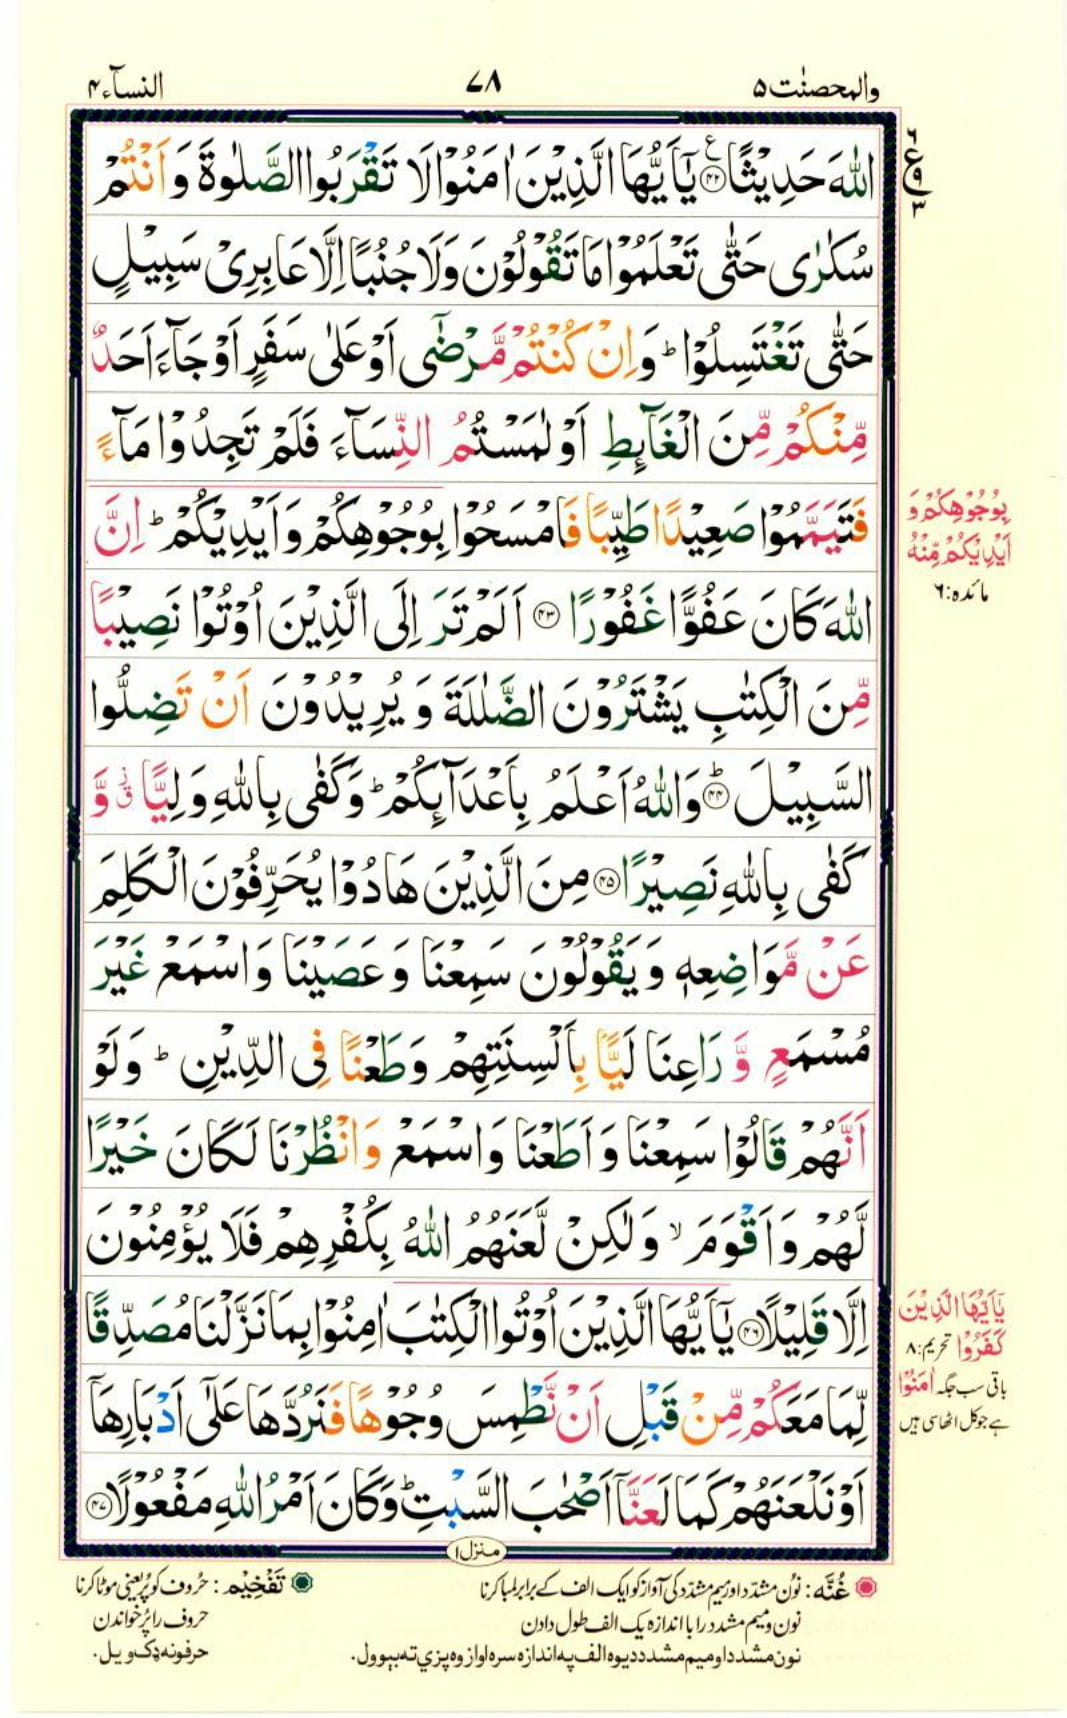 والمحصنٰت ۵
۷۸
النسآء ۴
اللّٰهَ حَدِیْثًا ۟۴۲ یٰۤاَیُّهَا الَّذِیْنَ اٰمَنُوْا لَا تَقْرَبُوا الصَّلٰوةَ وَ اَنْتُمْ
سُكٰرٰی حَتّٰی تَعْلَمُوْا مَا تَقُوْلُوْنَ وَلَا جُنُبًا اِلَّا عَابِرِیْ سَبِیْلٍ
حَتّٰی تَغْتَسِلُوْا ؕ وَ اِنْ كُنْتُمْ مَّرْضٰۤی اَوْ عَلٰی سَفَرٍ اَوْ جَآءَ اَحَدٌ
مِّنْكُمْ مِّنَ الْغَآىِٕطِ اَوْ لٰمَسْتُمُ النِّسَآءَ فَلَمْ تَجِدُوْا مَآءً
فَتَیَمَّمُوْا صَعِیْدًا طَیِّبًا فَامْسَحُوْا بِوُجُوْهِكُمْ وَ اَیْدِیْكُمْ ؕ اِنَّ
اللّٰهَ كَانَ عَفُوًّا غَفُوْرًا ۟۴۳ اَلَمْ تَرَ اِلَی الَّذِیْنَ اُوْتُوْا نَصِیْبًا
مِّنَ الْكِتٰبِ یَشْتَرُوْنَ الضَّلٰلَةَ وَ یُرِیْدُوْنَ اَنْ تَضِلُّوا
السَّبِیْلَ ۟ؕ۴۴ وَاللّٰهُ اَعْلَمُ بِاَعْدَآىِٕكُمْ ؕ وَكَفٰی بِاللّٰهِ وَلِیًّا ۗۙ وَّ
كَفٰی بِاللّٰهِ نَصِیْرًا ۟۴۵ مِنَ الَّذِیْنَ هَادُوْا یُحَرِّفُوْنَ الْكَلِمَ
عَنْ مَّوَاضِعِهٖ وَ یَقُوْلُوْنَ سَمِعْنَا وَ عَصَیْنَا وَ اسْمَعْ غَیْرَ
مُسْمَعٍ وَّ رَاعِنَا لَیًّۢا بِاَلْسِنَتِهِمْ وَ طَعْنًا فِی الدِّیْنِ ؕ وَ لَوْ
اَنَّهُمْ قَالُوْا سَمِعْنَا وَ اَطَعْنَا وَ اسْمَعْ وَ انْظُرْنَا لَكَانَ خَیْرًا
لَّهُمْ وَ اَقْوَمَ ۙ وَ لٰكِنْ لَّعَنَهُمُ اللّٰهُ بِكُفْرِهِمْ فَلَا یُؤْمِنُوْنَ
اِلَّا قَلِیْلًا ۟۴۶ یٰۤاَیُّهَا الَّذِیْنَ اُوْتُوا الْكِتٰبَ اٰمِنُوْا بِمَا نَزَّلْنَا مُصَدِّقًا
لِّمَا مَعَكُمْ مِّنْ قَبْلِ اَنْ نَّطْمِسَ وُجُوْهًا فَنَرُدَّهَا عَلٰۤی اَدْبَارِهَاۤ
اَوْ نَلْعَنَهُمْ كَمَا لَعَنَّاۤ اَصْحٰبَ السَّبْتِ ؕ وَ كَانَ اَمْرُ اللّٰهِ مَفْعُوْلًا ۟۴۷
۶
ع
۹
۳
بِوُجُوْهِكُمْ وَ
اَیْدِیْكُمْ مِّنْهُ
مائدہ:۶
یٰۤاَیُّهَا الَّذِیْنَ
كَفَرُوْا تحریم:۸
باقی سب جگہ اٰمَنُوْا
ہے جو کل اٹھاسی ہیں
منزل ۱
غُنَّه: نون مشدد اور میم مشدد کی آواز کو ایک الف کے برابر لمبا کرنا
نون و میم مشدد را با اندازہ یک الف طول دادن
نون مشدد او میم مشدد د یوه الف په اندازه سره اواز وه پزي ته بېوول.
تَفْخِیْم: حُروف کو پُر یعنی موٹا کرنا
حروف را پُر خواندن
حرفونه ډک ویل.